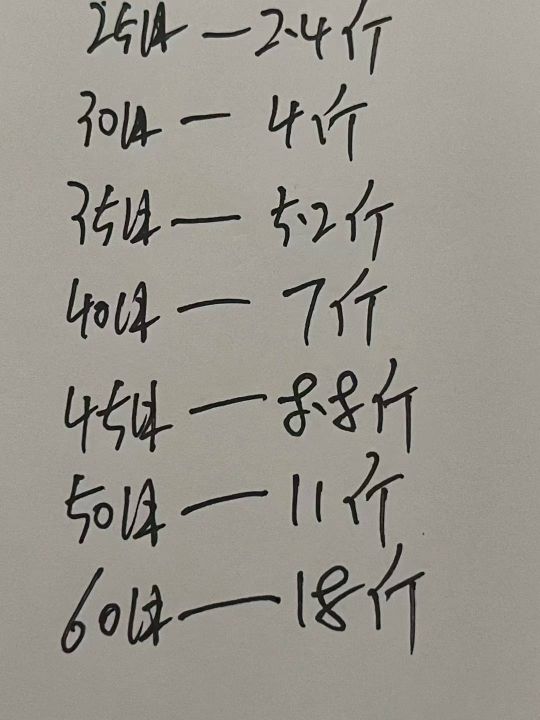 25体—2.4斤
30体—4斤
35体—5.2斤
40体—7斤
45体—8.8斤
50体—11斤
60体—18斤